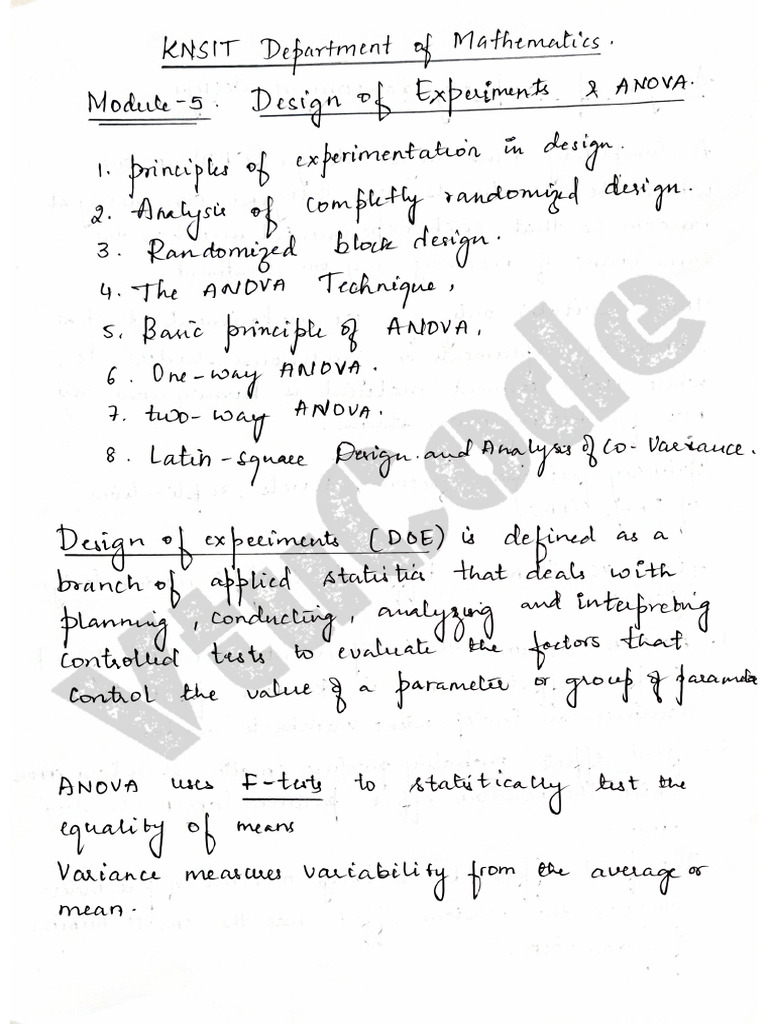 KNSIT Department of Mathematics.
Module-5. Design of Experiments & ANOVA.
1. principles of experimentation in design.
2. Analysis of completly randomized design.
3. Randomized block design.
4. The ANOVA Technique,
5. Basic principle of ANOVA,
6. One-way ANOVA.
7. two-way ANOVA.
8. Latin-square Design and Analysis of Co-Variance.
Design of experiments (DOE) is defined as a
branch of applied statistics that deals with
planning, conducting, analyzing and interpreting
controlled tests to evaluate the factors that
control the value of a parameter or group of
ANOVA uses F-tests to statistically test the
equality of means
Variance measures variability from the average or
mean.
VtuCode